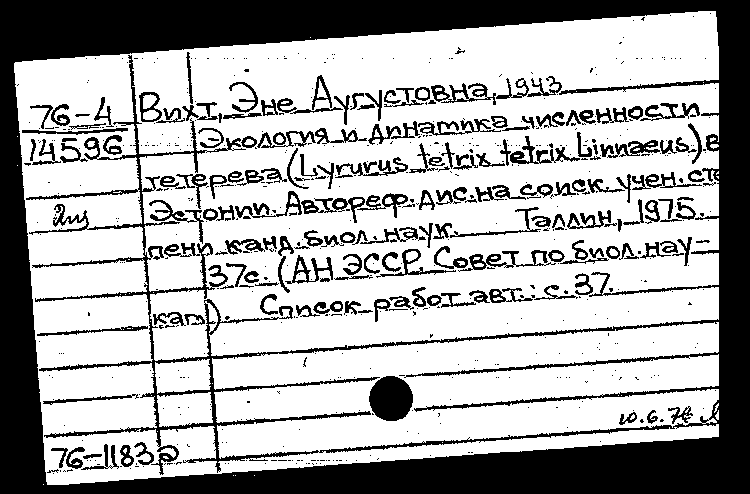 76-4 Вихт, Эне Аугустовна, 1943
14596 Экология и динамика численности
тетерева (Lyrurus tetrix tetrix Linnaeus) в
2 Эстонии. Автореф. дис. на соиск. учен. сте
пени канд. биол. наук. Таллин, 1975.
37с. (АН ЭССР. Совет по биол. нау-
кам). Список работ авт.: с. 37.
10.6.76
76-11832